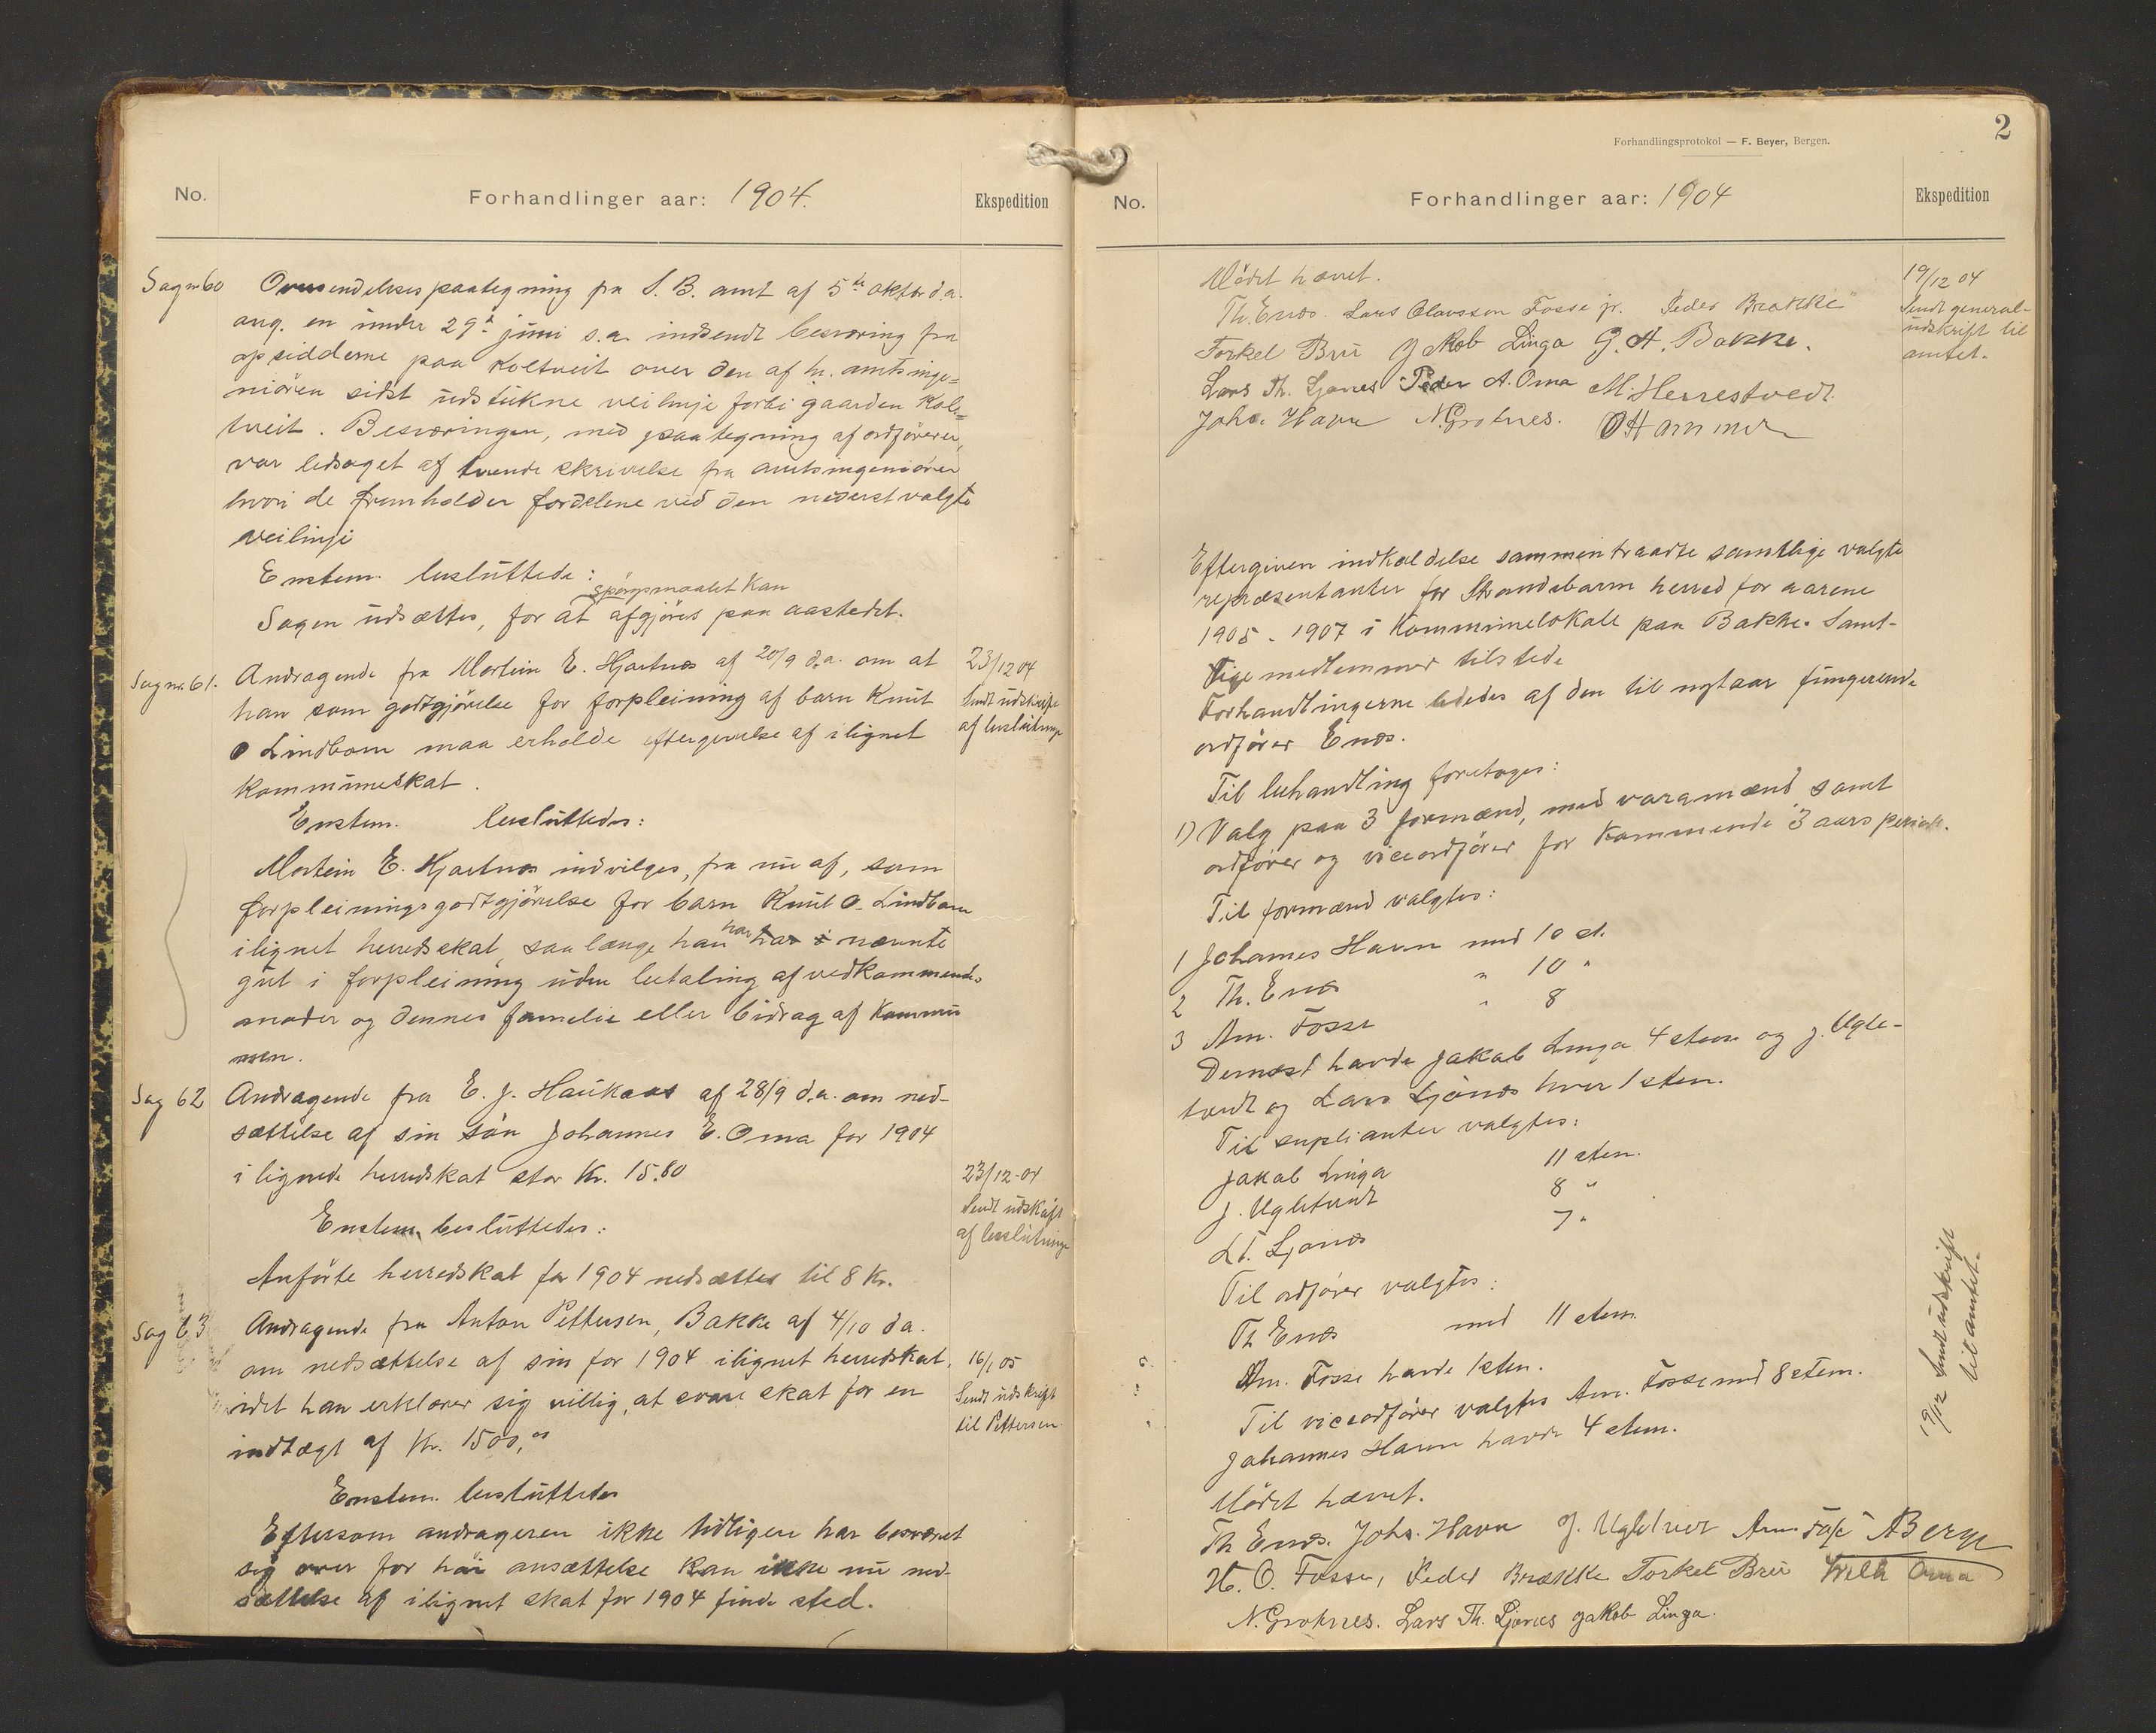 No.
Forhandlinger aar: 1904.
Ekspedition
Sag nr 60
Oversendelsespaategning fra S. B. amt af 5te oktbr d.a.
ang. en under 29de juni s.a. indsendt besværing fra
opsidderne paa Koltveit over den af hr. amtsinge-
niøren sidst udstukne veilinje forbi gaarden Kol-
tveit. Besværingen, med paategning af ordføreren,
var ledsaget af tvende skrivelse fra amtsingeniøren
hvori de fremholder fordelene ved den nederst valgte
veilinje
Enstem. besluttede:
spørgsmaalet kan
Sagen udsættes, for at afgjøres paa aastedet.
Sag nr. 61.
Andragende fra Mortein E. Hjartnæs af 20/9 d.a. om at
han som godtgjørelse for forpleining af barn Knut
O Lindbom maa erholde eftergivelse af ilignet
kommuneskat.
23/12 04
Sendt udskrift
af beslutninge
Enstem. besluttedes:
Mortein E. Hjartnæs indvilges, fra nu af, som
forpleiningsgodtgjørelse for barn Knut O. Lindbom
ilignet herredskat, saa længe han har nævnte
gut i forpleining uden betaling af vedkommendes
moder og dennes familie eller bidrag af kommu
nen.
Sag 62
Andragende fra E. J. Haukaas af 28/9 d.a. om ned-
sættelse af sin søn Johannes E. Oma for 1904
ilignede herredskat stor Kr. 15.80
23/12-04
Sendt udskrift
af beslutninge
Enstem. besluttedes:
Anførte herredskat for 1904 nedsættes til 8 Kr.
Sag 63
Andragende fra Anton Pettersen, Bakke af 4/10 d.a.
om nedsættelse af sin for 1904 ilignet herredskat,
idet han erklærer sig villig, at svare skat for en
indtægt af Kr. 1500,00
16/1 05
Sendt udskrift
til Pettersen
Enstem. besluttedes
Eftersom andrageren ikke tidligere har besværet
sig over for høi ansættelse kan ikke nu ned-
sættelse af ilignet skat for 1904 finde sted.
Forhandlingsprotokol — F. Beyer, Bergen.
2
No.
Forhandlinger aar: 1904
Ekspedition
Mødet hævet.
Th. Enæs. Lars Olavsson Fosse jr. Peder Brække
Torkel Bru Jakob Linga G. A. Bakke.
Lars Th. Ljones Peder A. Oma M. Herrestvedt.
Johs. Havn N. Grotnes. O Hammer
19/12 04
Sendt general-
udskrift til
amtet.
Eftergiven indkaldelse sammentraadte samtlige valgte
repræsentanter for Strandebarm herred for aarene
1905 - 1907 i Kommunelokale paa Bakke. Samt-
lige medlemmer tilstede
Forhandlingerne lededes af den til nytaar fungerende
ordfører Enæs.
Til behandling foretoges:
1) Valg paa 3 formænd, med varamænd samt
ordfører og viceordfører for kommende 3 aars periode.
Til formænd valgtes:
1 Johannes Havn med 10 st.
2 Th. Enæs " 10 "
3 Am. Fosse " 8
Dernæst havde Jakob Linga 4 stem og J. Uglе-
tvedt og Lars Ljønæs hver 1 stem.
Til suplianter valgtes:
Jakob Linga 11 stem.
J. Ugletvedt 8 "
L T. Ljonæs 7 "
Til ordfører valgtes:
Th Enæs med 11 stem.
Am. Fosse havde 1 stem.
Til viceordfører valgtes Am. Fosse med 8 stem.
Johannes Havn havde 4 stem.
19/12 Sendt udskrift
til amtet.
Mødet hævet.
Th Enæs. Johs. Havn J. Ugletvet Am. Fosse A Berge
H. O. Fosse, Peder Brække Torkel Bru Oma
N. Grotnes. Lars Th. Ljones Jakob Linga.